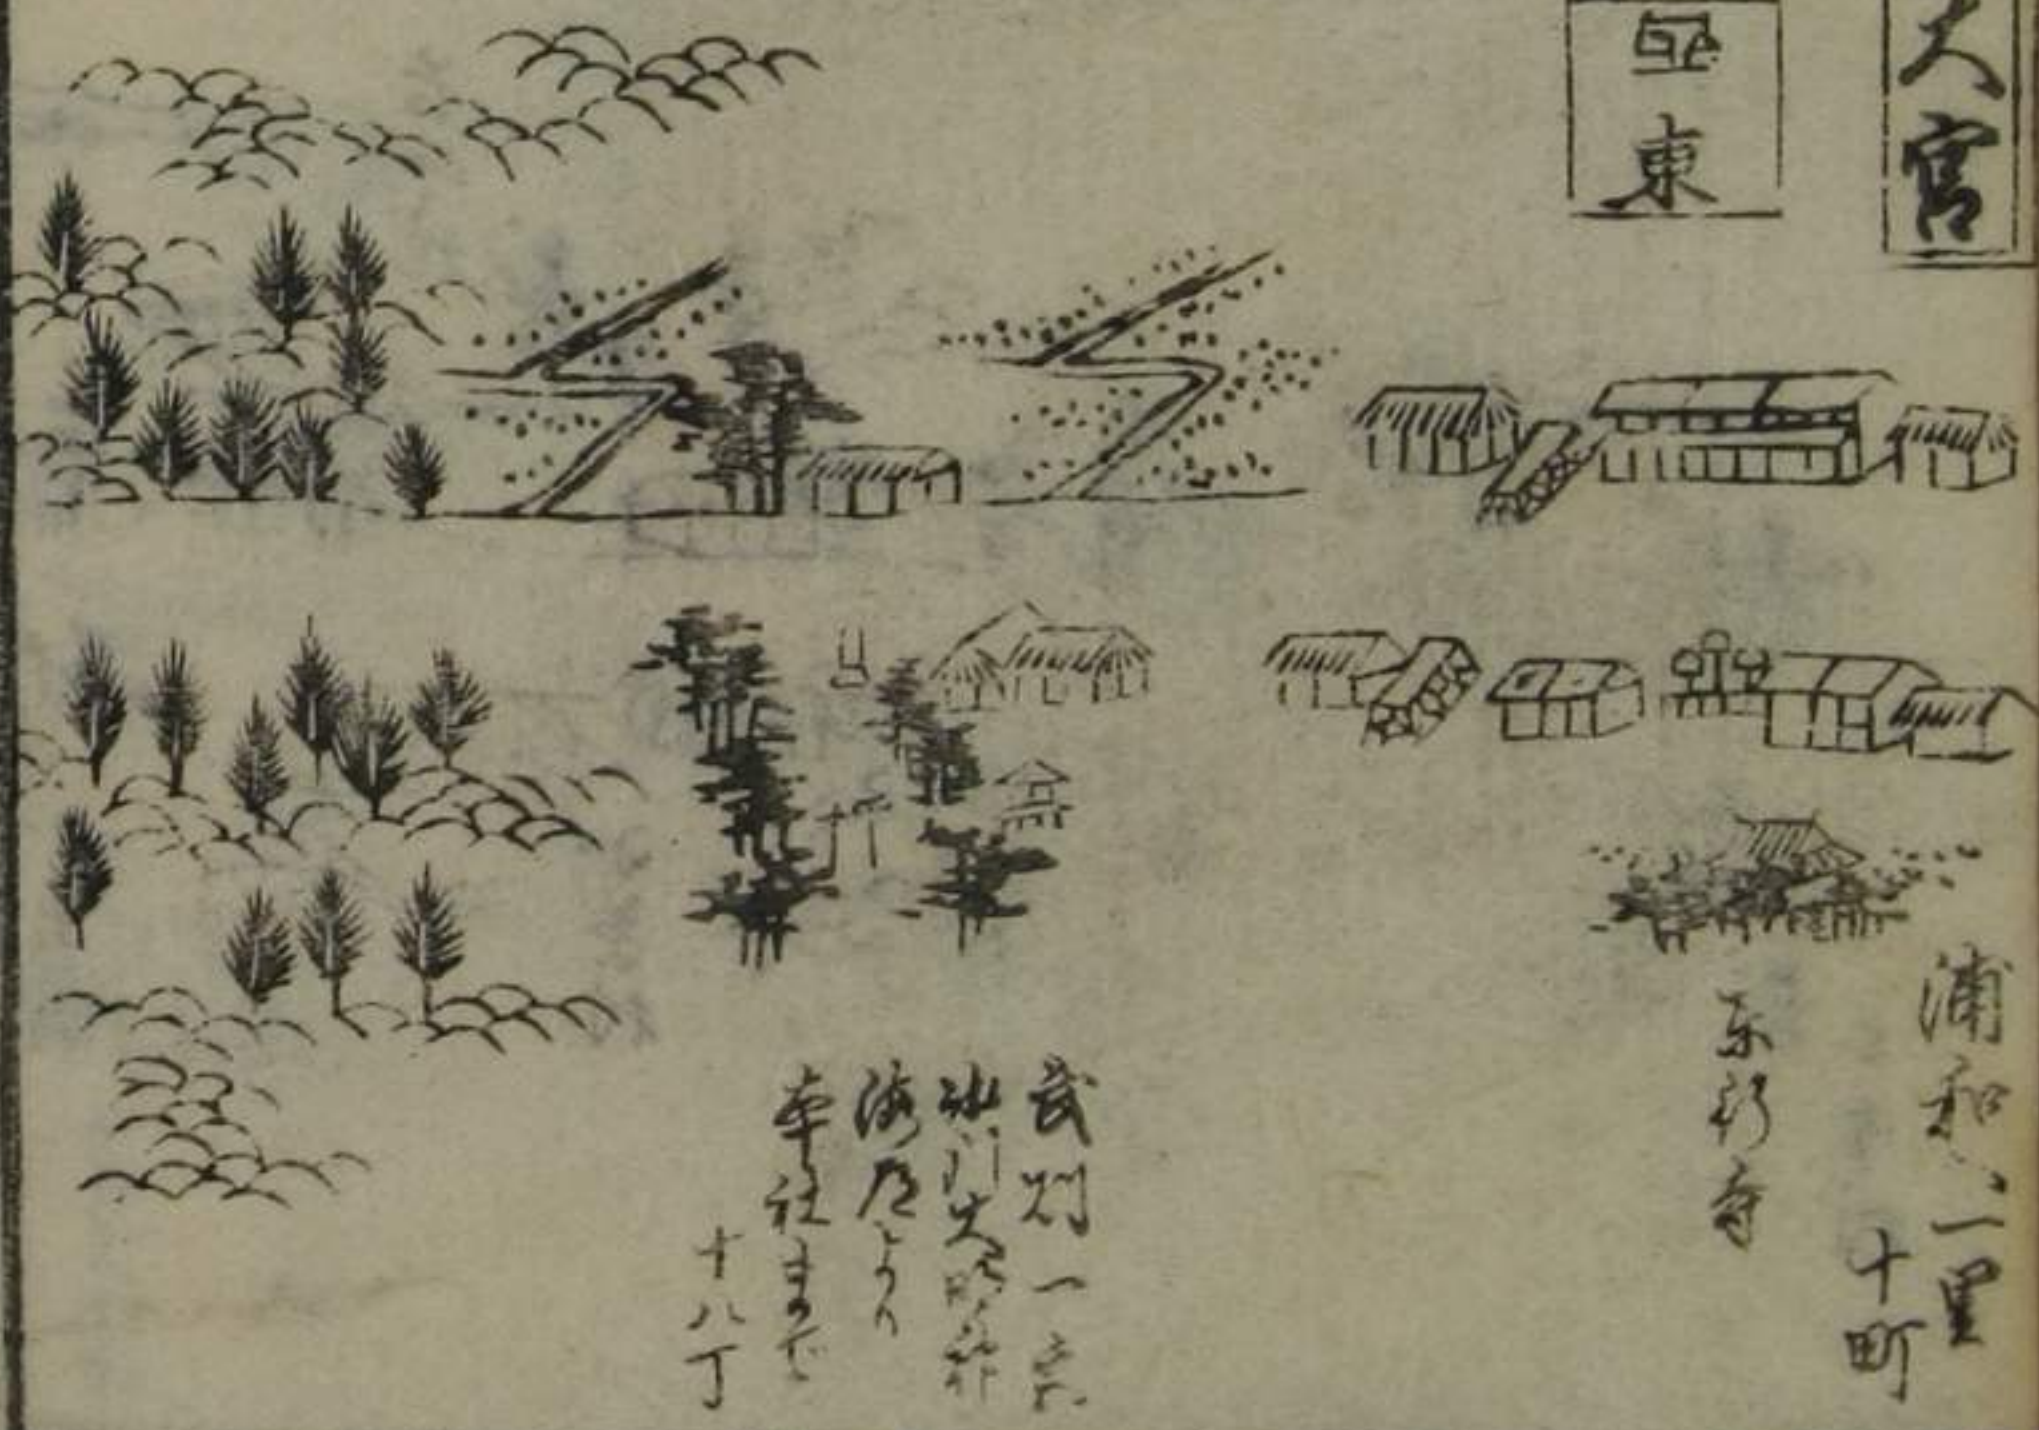 大宮
東
浦和へ二里
十町
东影寺
武州一宮
氷川大明神
海道より
本社まで
十八丁